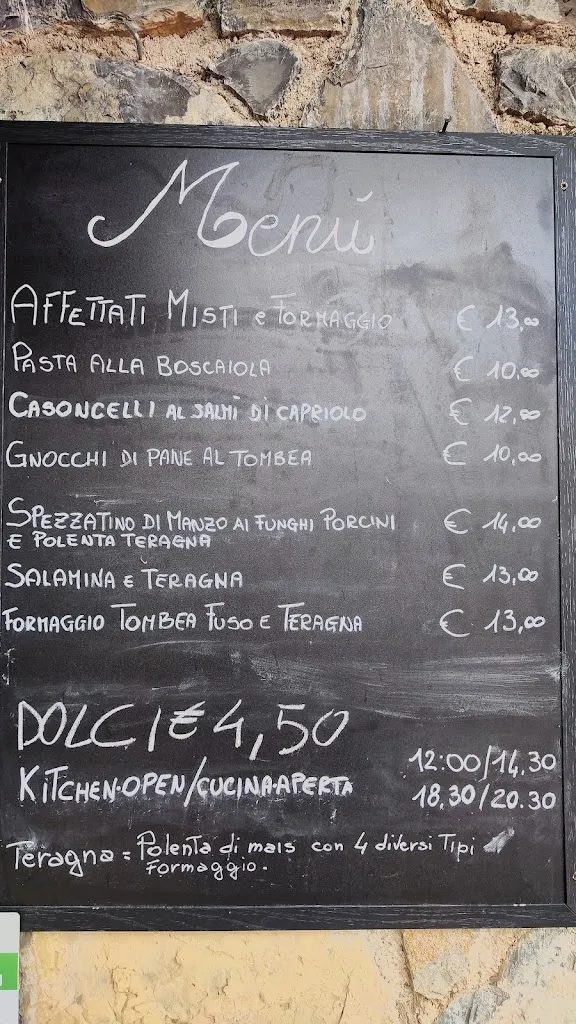 Menú
AFFETTATI MISTI e FORMAGGIO € 13,00
PASTA ALLA BOSCAIOLA € 10,00
CASONCELLI AL SALMÌ DI CAPRIOLO € 12,00
GNOCCHI DI PANE AL TOMBEA € 10,00
SPEZZATINO DI MANZO AI FUNGHI PORCINI € 14,00
E POLENTA TERAGNA
SALAMINA E TERAGNA € 13,00
FORMAGGIO TOMBEA FUSO E TERAGNA € 13,00
DOLCI € 4,50
KITCHEN·OPEN/CUCINA·APERTA 12:00/14,30
18,30/20.30
Teragna = Polenta di mais con 4 diversi Tipi
Formaggio.